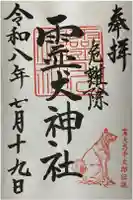 奉拝
厄難除
霊犬神社
令和八年七月十九日